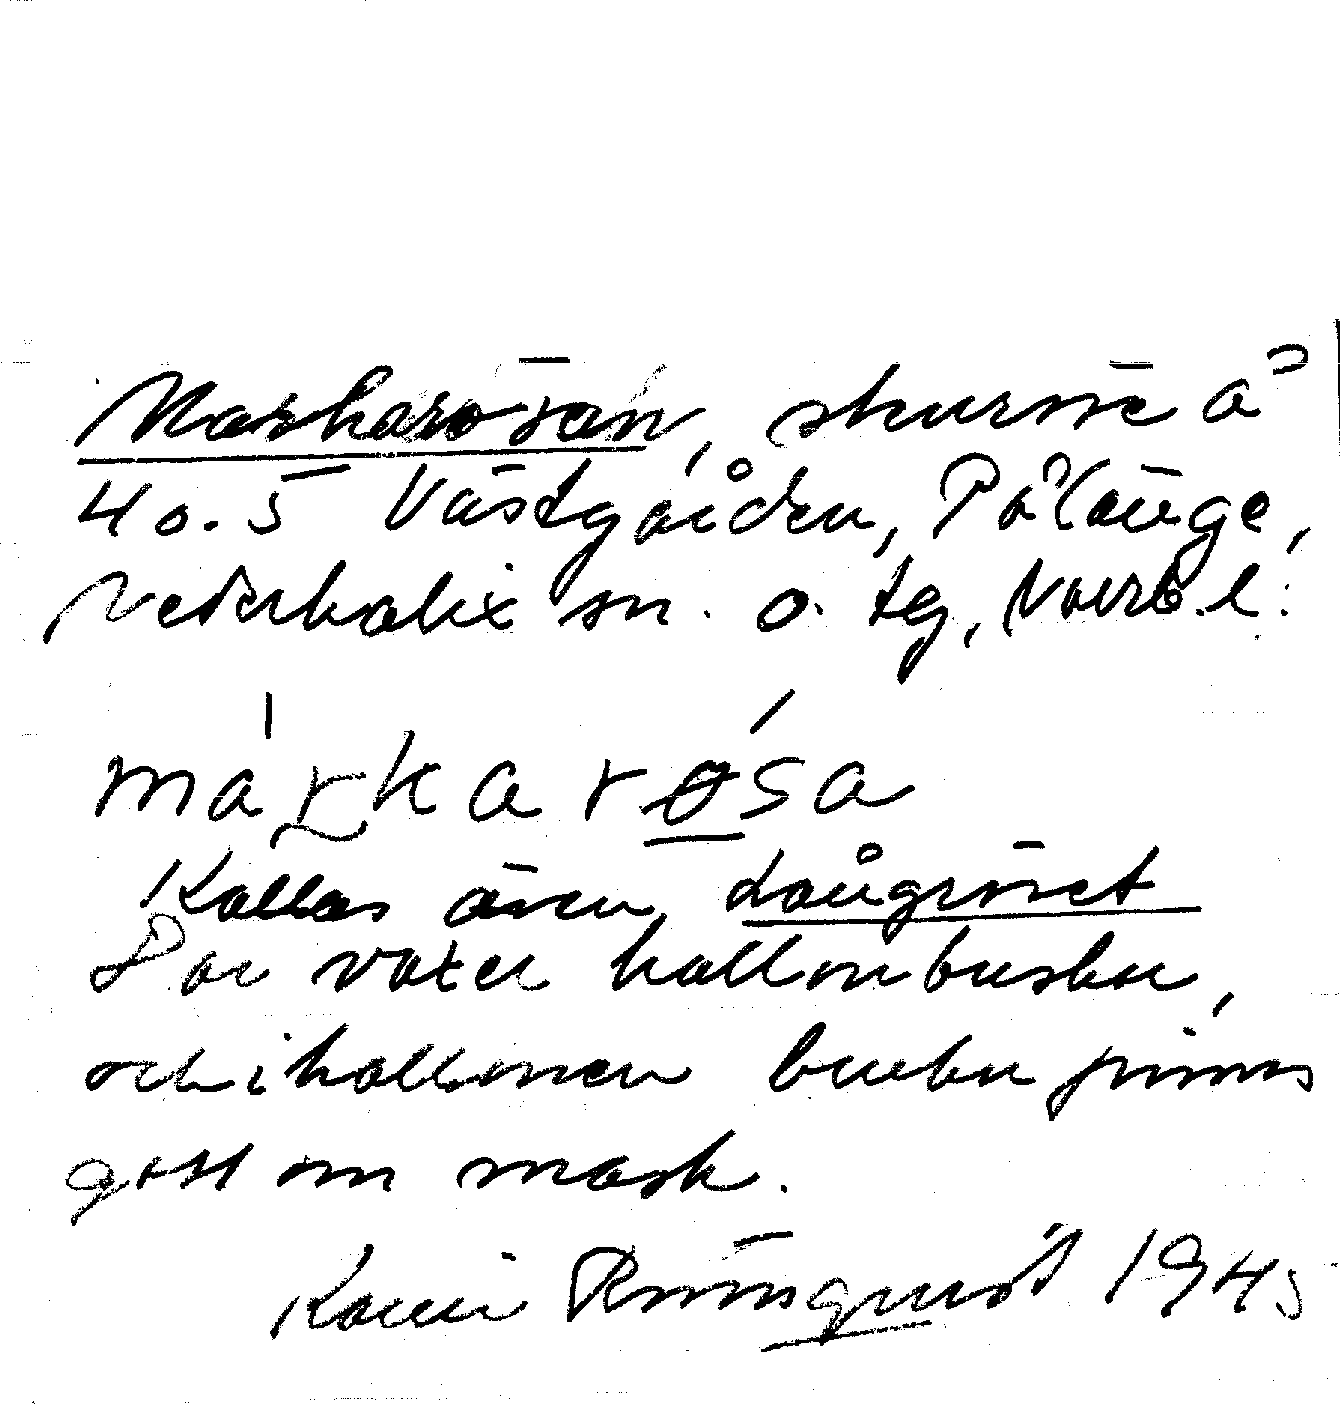 Maskarösen, skurne å
4 o. 5 Västgården, Pålänge,
Nederkalix sn. o. tg, Norrb. l.
márkarósa
Kallas även Långröset
Där växer hallonbuskar,
och i hallonen brukar finnas
gott om mask.
Karin Rönnquist 1945